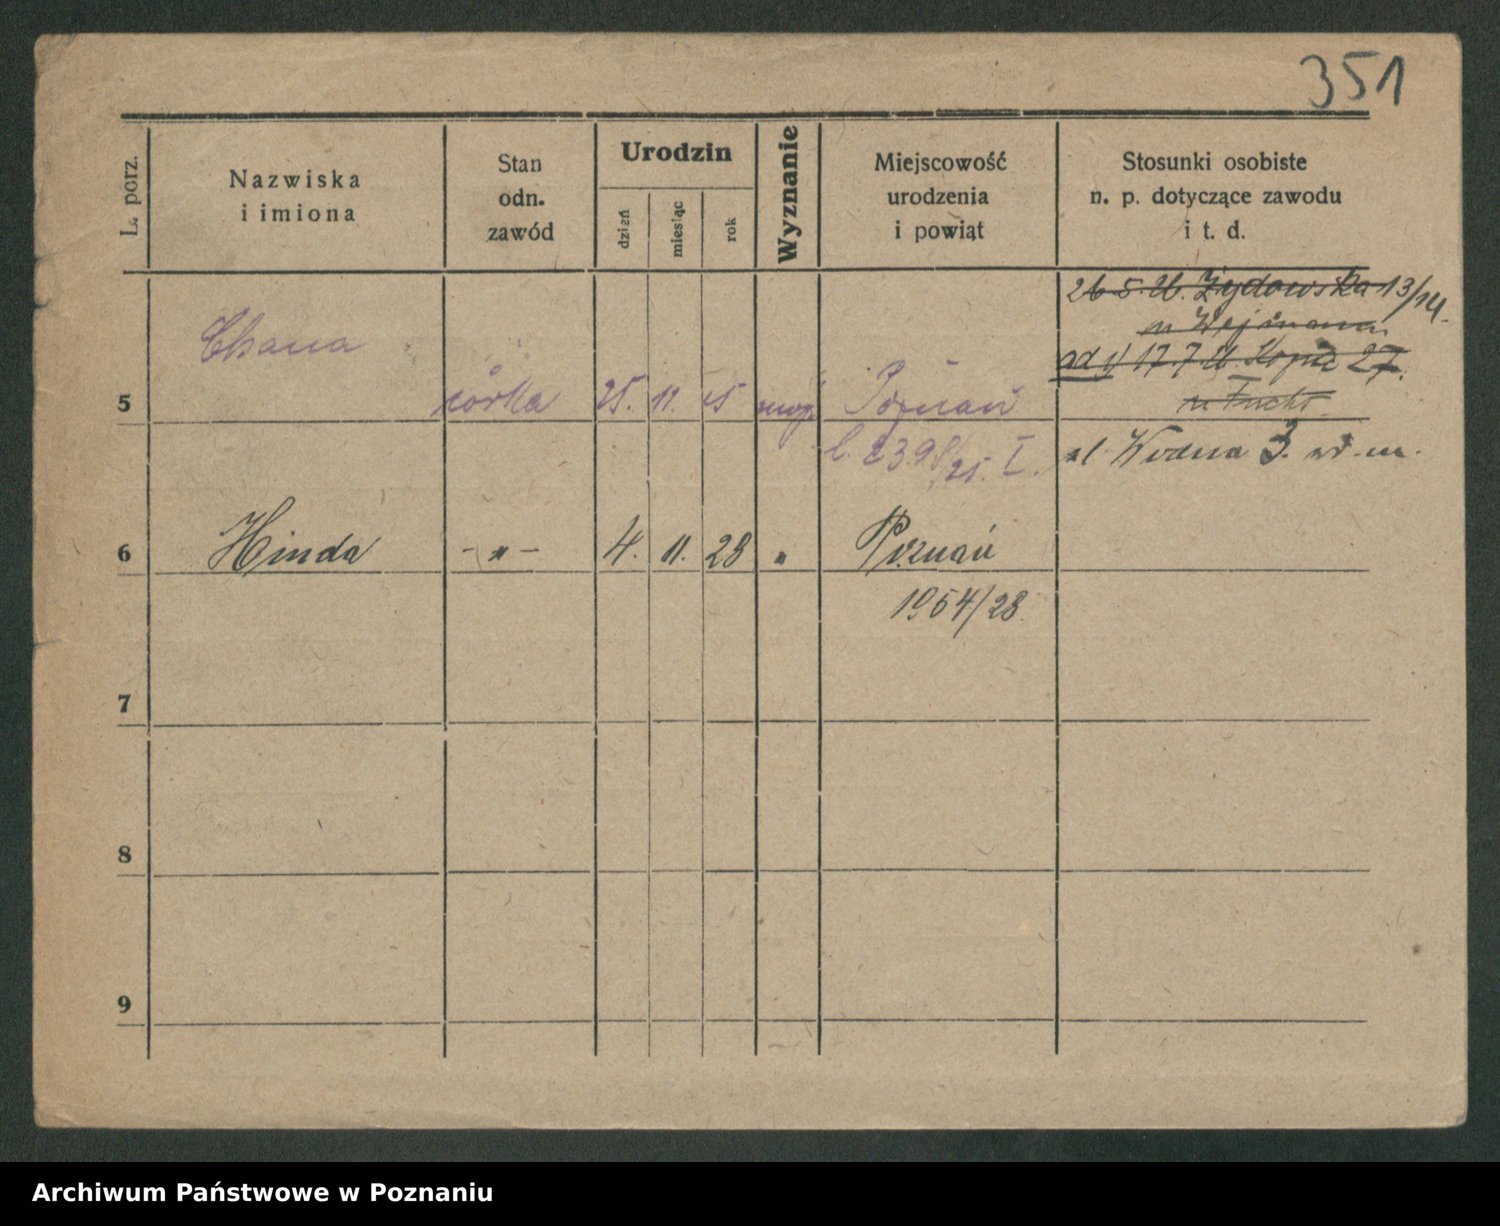 351
L. porz.
Nazwiska
i imiona
Stan
odn.
zawód
Urodzin
dzień
miesiąc
rok
Wyznanie
Miejscowość
urodzenia
i powiat
Stosunki osobiste
n. p. dotyczące zawodu
i t. d.
26 5. Żydowska 13/14.
u Wejmann
ad 1) 17 7 27.
u Fuchs
5 Chana córka 25. 11. 25 mojż Poznań
ul Wodna 3.
I.
6 Hinda - " - 4. 11. 28 " Poznań
1954/28
7
8
9
Archiwum Państwowe w Poznaniu